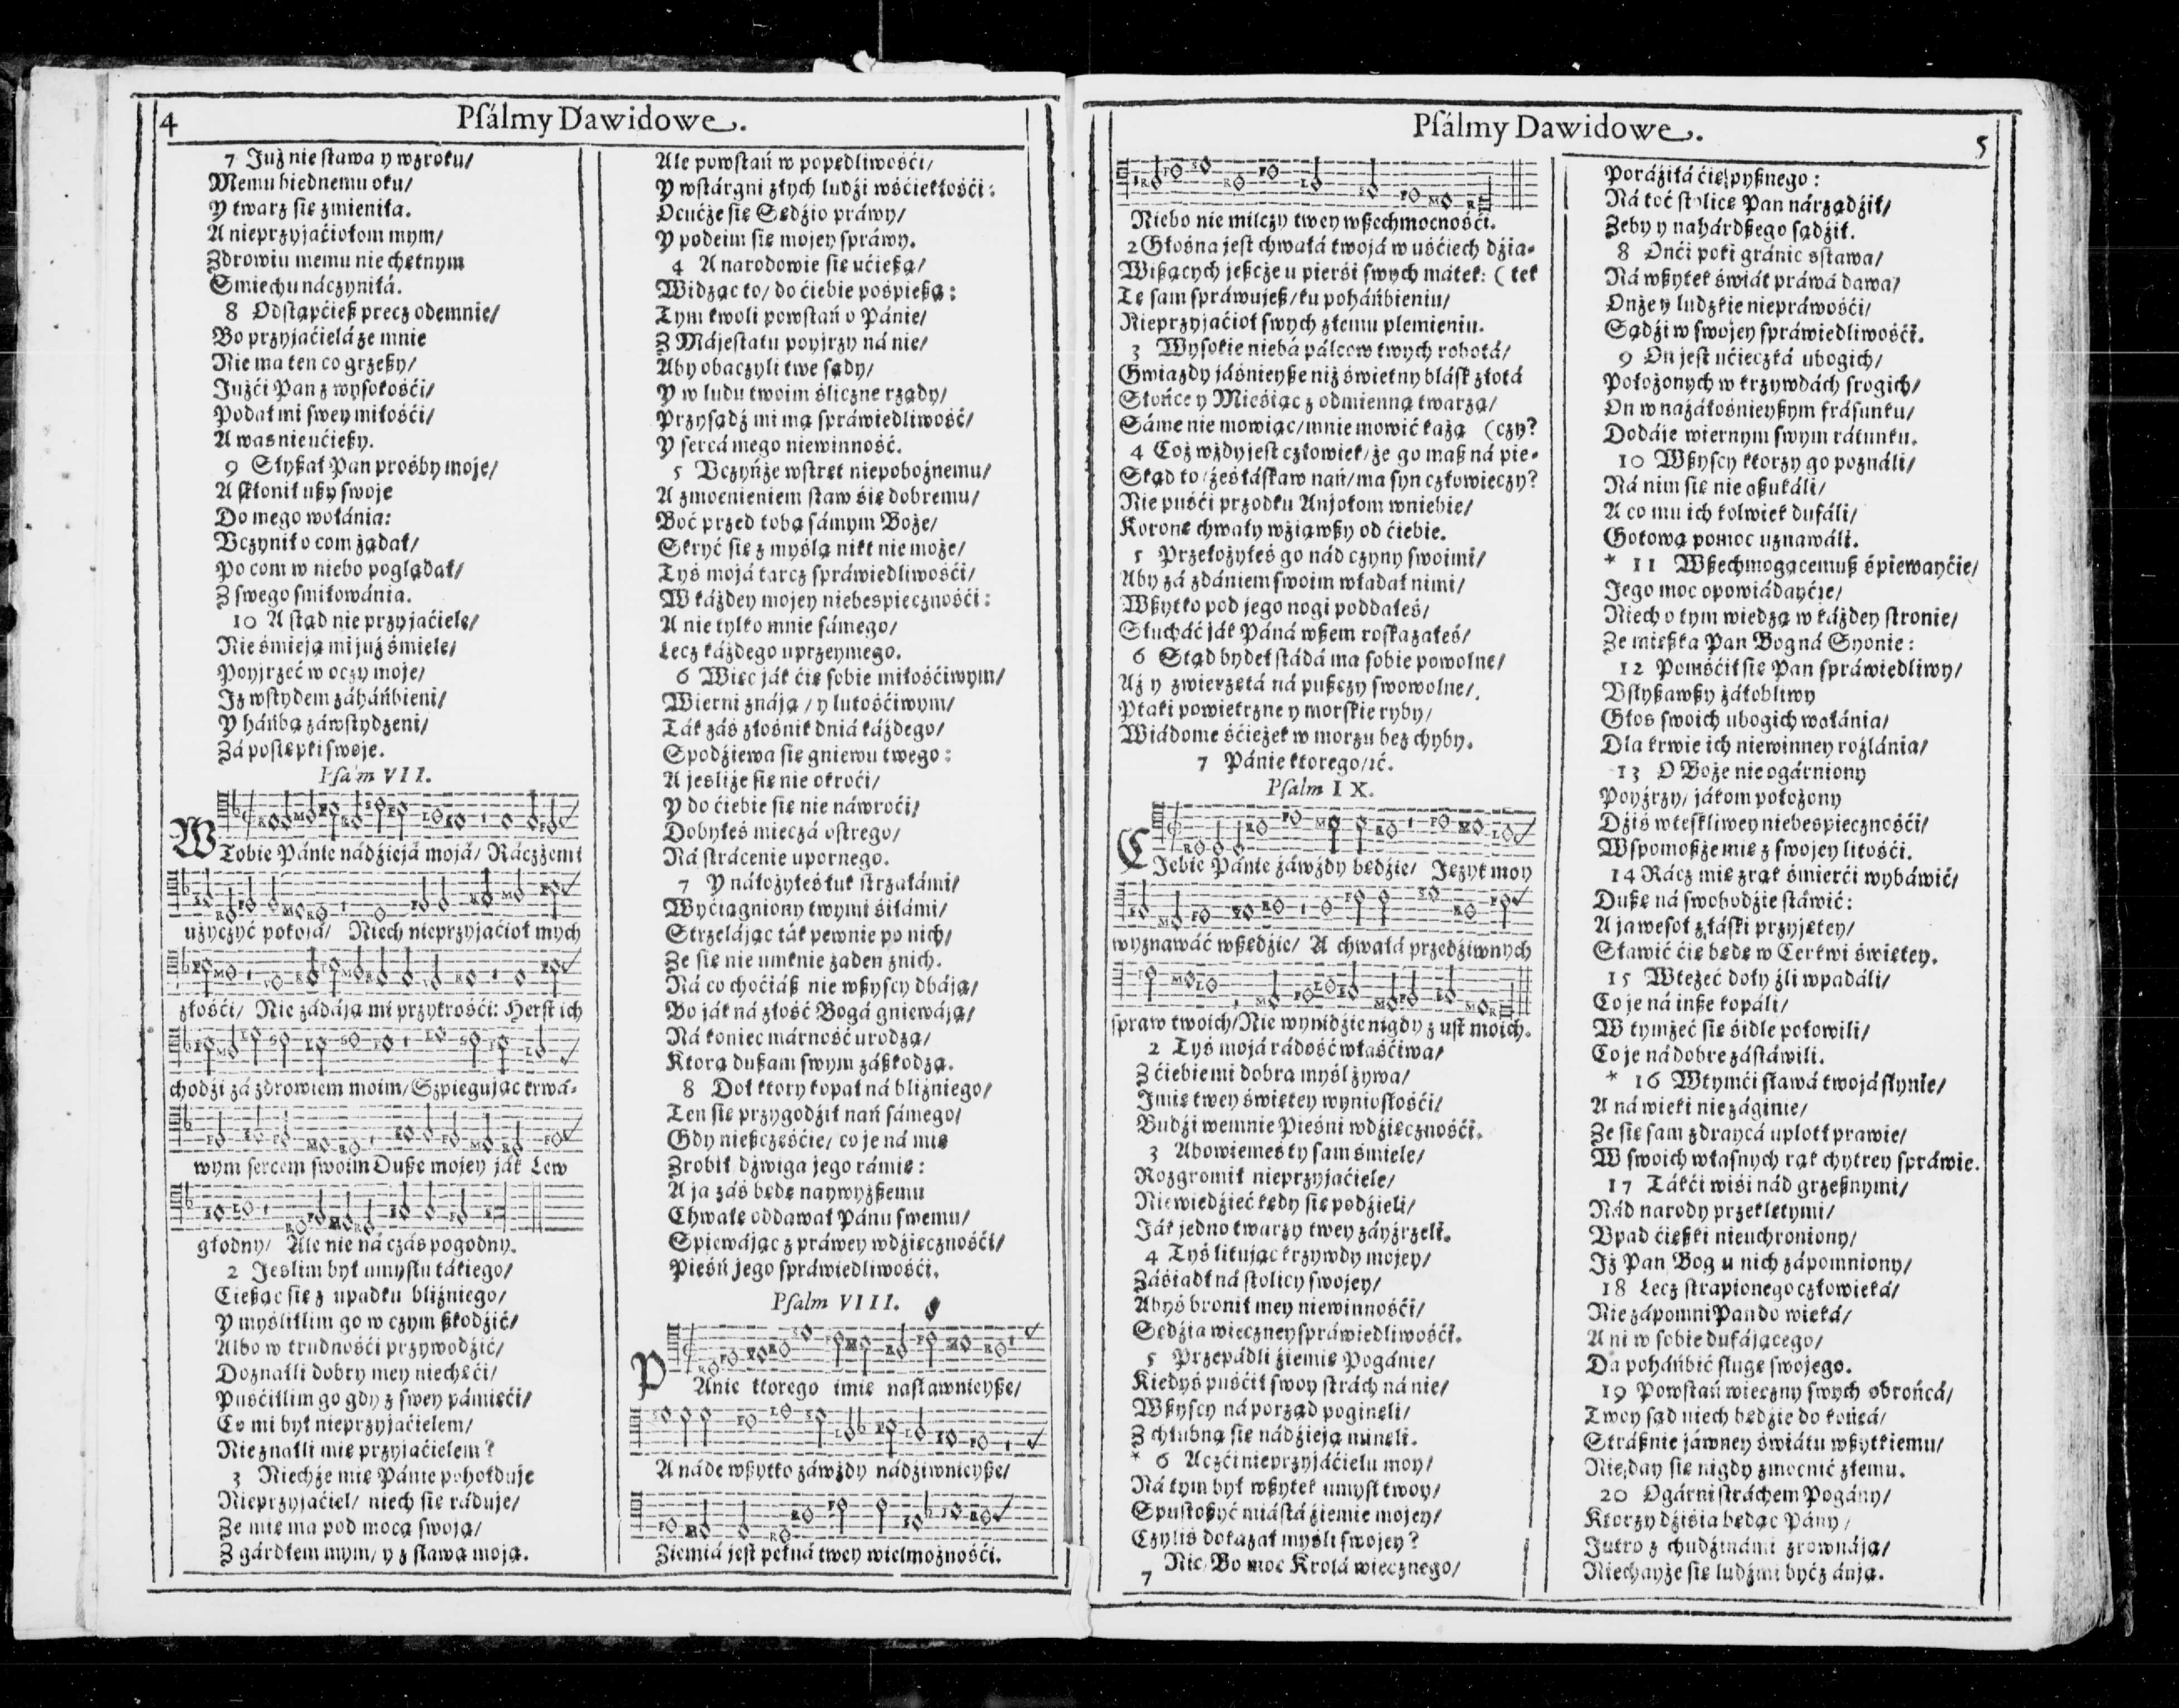 4
Psálmy Dawidowe.
7 Już nie stawa y wzroku/
Memu biednemu oku/
Y twarz się zmieniła.
A nieprzyjaćiołom mym/
Zdrowiu memu nie chętnym
Smiechu náczyniłá.
8 Odstąpćież precz odemnie/
Bo przyjaćielá ze mnie
Nie ma ten co grzeßy/
Jużći Pan z wysokośći/
Podał mi swey miłośći/
A was nieućießy.
9 Słyßał Pan prośby moje/
A skłonił ußy swoje
Do mego wołánia:
Vczynił o com żądał/
Po com w niebo poglądał/
Z swego smiłowánia.
10 A stąd nie przyjaćiele/
Nie śmieją mi już śmiele/
Poyjrzeć w oczy moje/
Iż wstydem záháńbieni/
Y háńbą záwstydzeni/
Zá postępki swoje.
Psalm VII.
W Tobie Pánie nádźiejá mojá/ Ráczże mi
użyczyć pokojá/ Niech nieprzyjaćioł mych
złośći/ Nie zádáją mi przykrośći: Herst ich
chodźi zá zdrowiem moim/ Szpiegując krwá-
wym sercem swoim Duße mojey ják Lew
głodny/ Ale nie ná czás pogodny.
2 Jeslim był umysłu tákiego/
Cießąc się z upadku bliźniego/
Y myślitlim go w czym ßkodźić/
Albo w trudnośći przywodźić/
Doznałli dobry mey niechęći/
Pusćiłlim go gdy z swey pámięći/
Co mi był nieprzyjaćielem/
Nie znałli mię przyjaćielem?
3 Niechże mię Pánie poholduje
Nieprzyjaćiel/ niech się ráduje/
Ze mię ma pod mocą swoją/
Z gárdłem mym/ y z sławą moją.
Ale powstań w popędliwośći/
Y wstárgni złych ludźi wśćiekłośći:
Ocućże się Sędźio práwy/
Y podeim się mojey spráwy.
4 A narodowie się ućießą/
Widząc to/ do ćiebie pośpießą:
Tym kwoli powstań o Pánie/
Z Májestatu poyjrzy ná nie/
Aby obaczyli twe sądy/
Y w ludu twoim śliczne rządy/
Przysądź mi mą spráwiedliwość/
Y sercá mego niewinność.
5 Vczyńże wstręt niepobożnemu/
A zmocnieniem staw się dobremu/
Boć przed tobą sámym Boże/
Skryć się z myślą nikt nie może/
Tyś mojá tarcz spráwiedliwośći/
W káżdey mojey niebespiecznośći:
A nie tylko mnie sámego/
Lecz káżdego uprzeymego.
6 Więc ják ćię sobie miłośćiwym/
Wierni znáją/ y lutośćiwym/
Ták záś złośnik dniá káżdego/
Spodźiewa się gniewu twego:
A jesliże się nie okroći/
Y do ćiebie się nie náwroći/
Dobyłeś mieczá ostrego/
Ná strácenie upornego.
7 Y náłożyłeś łuk strzałámi/
Wyćiągniony twymi śiłámi/
Strzeláją ták pewnie po nich/
Ze się nie umknie żaden znich.
Ná co choćiáß nie wßyscy dbáją/
Bo ják ná złość Bogá gniewáją/
Ná koniec márność urodzą/
Ktorą dußam swym záßkodzą.
8 Doł ktory kopał ná bliźniego/
Ten się przygodźił nań sámego/
Gdy nießczęśćie/ co je ná mię
Zrobił/ dźwiga jego rámię:
A ja záś będę naywyżßemu
Chwałę oddawał Pánu swemu/
Spiewájąc z práwey wdźięcznośći/
Pieśń jego spráwiedliwośći.
Psalm VIII.
PAnie ktorego imię nasławnieyße/
A náde wßytko záwżdy nádźiwnieyße/
Ziemiá jest pełná twey wielmożnośći.
Psálmy Dawidowe.
5
Niebo nie milczy twey wßechmocnośći.
2 Głośna jest chwałá twojá w uśćiech dźia-
Wißących jeßcze u pierśi swych mátek: (tek
Tę sam spráwujeß/ ku poháńbieniu/
Nieprzyjaćioł swych złemu plemieniu.
3 Wysokie niebá pálcow twych robotá/
Gwiazdy jáśnieyße niż świetny blásk złotá
Słońce y Mieśiąc z odmienną twarzą/
Sáme nie mowiąc/ mnie mowić każą (czy?
4 Coż wżdy jest człowiek/ że go maß ná pie-
Skąd to/ żeś łáskaw nań/ ma syn człowieczy?
Nie puśći przodku Anjołom w niebie/
Koronę chwały wźiąwßy od ćiebie.
5 Przełożyłeś go nád czyny swoimi/
Aby zá zdániem swoim władał nimi/
Wßytko pod jego nogi poddałeś/
Słucháć ják Páná wßem roskazałeś/
6 Stąd bydeł stádá ma sobie powolne/
Aż y zwierzętá ná pußczy swowolne/
Ptaki powietrzne y morskie ryby/
Wiádome śćieżek w morzu bez chyby.
7 Pánie ktorego/ ić.
Psalm IX.
CIebie Pánie záwżdy będźie/ Język moy
wyznawáć wßędźie/ A chwałá przedźiwnych
spraw twoich/ Nie wynidźie nigdy z ust moich.
2 Tyś mojá rádość właśćiwa/
Z ćiebie mi dobra myśl żywa/
Imię twey świętey wyniosłośći/
Budźi wemnie Pieśni wdźięcznośći.
3 Abowiemeś ty sam śmiele/
Rozgromił nieprzyjaćiele/
Nie wiedźieć kędy się podźieli/
Ják jedno twarzy twey záyźrzeli.
4 Tyś litując krzywdy mojey/
Záśiadł ná stolicy swojey/
Abyś bronił mey niewinnośći/
Sędźia wieczney spráwiedliwośći.
5 Przepádli źiemię Pogánie/
Kiedyś puśćił swoy strách ná nie/
Wßyscy ná porząd poginęli/
Z chłubną się nádźieją minęli.
* 6 Aczći nieprzyjáćielu moy/
Ná tym był wßytek umysł twoy/
Spustoßyć miástá źiemie mojey/
Czyliś dokazał myśli swojey?
7 Nic. Bo moc Krolá wiecznego/
Poráźiłá ćię pyßnego:
Ná toć stolicę Pan nárządźił/
Zeby y nahárdßego sądźił.
8 Onći poki gránic sstawa/
Ná wßytek świát práwá dawa/
Onże y ludzkie niepráwośći/
Sądźi w swojey spráwiedliwośći.
9 On jest ućieczká ubogich/
Położonych w krzywdách srogich/
On w nażáłośnieyßym frásunku/
Dodáje wiernym swym rátunku.
10 Wßyscy ktorzy go poználi/
Ná nim się nie oßukáli/
A co mu ich kolwiek dufáli/
Gotową pomoc uznawáli.
* 11 Wßechmogącemuß śpiewayćie/
Jego moc opowiádayćie/
Niech o tym wiedzą w káżdey stronie/
Ze mießka Pan Bog ná Syonie:
12 Pomśćił się Pan spráwiedliwy/
Vsłyßawßy żáłobliwy
Głos swoich ubogich wołánia/
Dla krwie ich niewinney rozlánia/
13 O Boże nie ogárniony
Poyźrzy/ jákom położony
Dźiś w teskliwey niebespiecznośći/
Wspomożże mię z swojey litośći.
14 Rácz mię z rąk śmierći wybáwić/
Dußę ná swobodźie stáwić:
A ja wesoł z łáski przyjętey/
Sławić ćię będę w Cerkwi świętey.
15 Wteżeć doły źli wpadáli/
Co je ná inße kopáli/
W tymżeć się śidle połowili/
Co je ná dobre zástáwili.
* 16 Wtymći sławá twojá słynie/
A ná wieki nie záginie/
Ze się sam zdraycá uplotł prawie/
W swoich własnych rąk chytrey spráwie.
17 Tákći wiśi nád grzeßnymi/
Nád narody przeklętymi/
Vpad ćięßki nieuchroniony/
Iż Pan Bog u nich zápomniony/
18 Lecz strapionego człowieká/
Nie zápomni Pan do wieká/
Ani w sobie dufájącego/
Da poháńbić sługę swojego.
19 Powstań wieczny swych obrońcá/
Twoy sąd niech będźie do końcá/
Stráßnie jáwney świátu wßytkiemu/
Nie day się nigdy zmocnić złemu.
20 Ogárni stráchem Pogány/
Ktorzy dźiśia będąc Pány/
Jutro z chudźinámi zrownáją/
Niechayże się ludźmi być z ánją.